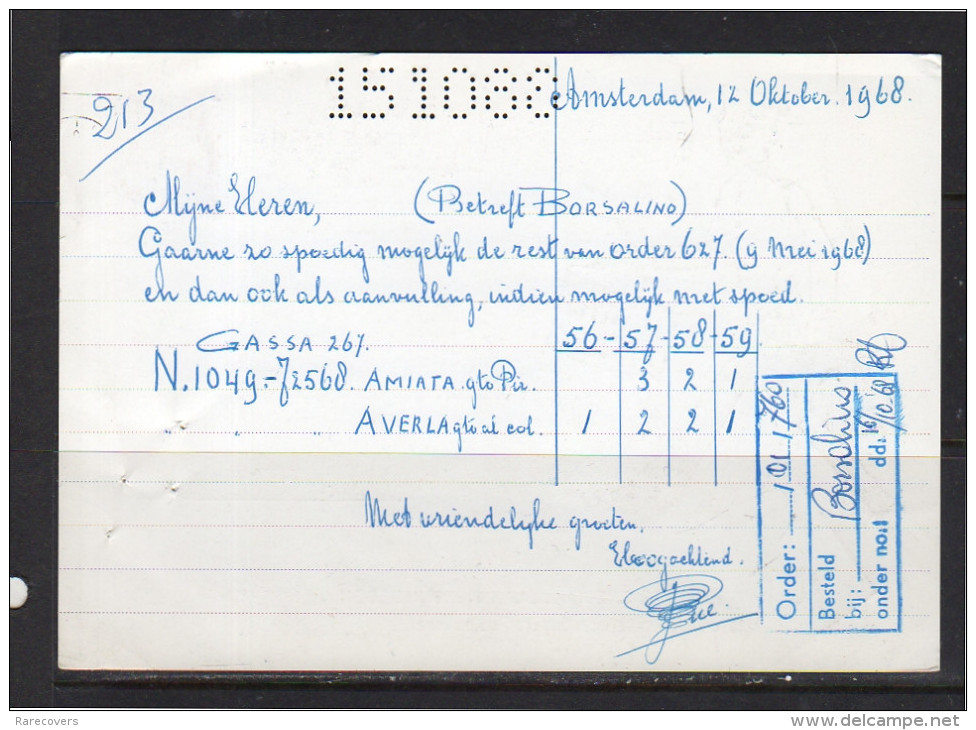 213
151068
Amsterdam, 12 Oktober. 1968.
Mijne Heren, (Betreft BORSALINO)
Gaarne zo spoedig mogelijk de rest van order 627. (9 mei 1968)
en dan ook als aanvulling, indien mogelijk met spoed.
GASSA 267. 56 - 57 - 58 - 59
N. 1049.- 72568. AMIATA. gto Pir. 3 2 1
" " " AVERLA gto al col. 1 2 2 1
Met vriendelijke groeten,
Hoogachtend.
Order: 101.1760
Besteld
bij: Borsalino
onder no: dd: 16/10'68
Rarecovers
delcampe.net